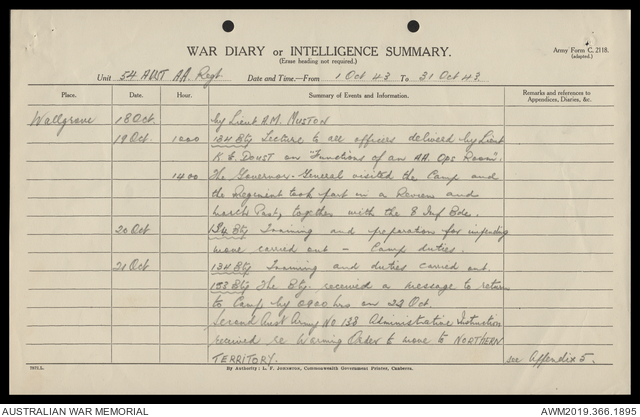 WAR DIARY or INTELLIGENCE SUMMARY.
(Erase heading not required.)
Army Form C. 2118.
(adapted.)
Unit 54 AUST AA. Regt Date and Time.—From 1 Oct 43 To 31 Oct 43.
Place. Date. Hour. Summary of Events and Information. Remarks and references to Appendices, Diaries, &c.
Wallgrove 18 Oct. by Lieut A.M. MUSTON
19 Oct. 1000 134 Bty Lecture to all officers delivered by Lieut
K F DOUST on "Functions of an AA. Ops Room".
1400 The Governor-General visited the Camp and
the Regiment took part in a Review and
March Past, together with the 8 Inf Bde.
20 Oct 134 Bty Training and preparation for impending
move carried out - Camp duties.
21 Oct 134 Bty Training and duties carried out.
153 Bty The Bty. received a message to return
to Camp by 0900 hrs on 22 Oct.
Second Aust Army No 138 Administrative Instruction
received re Warning Order to move to NORTHERN
TERRITORY. see Appendix 5.
By Authority: L. F. JOHNSTON, Commonwealth Government Printer, Canberra.
AUSTRALIAN WAR MEMORIAL AWM2019.366.1895